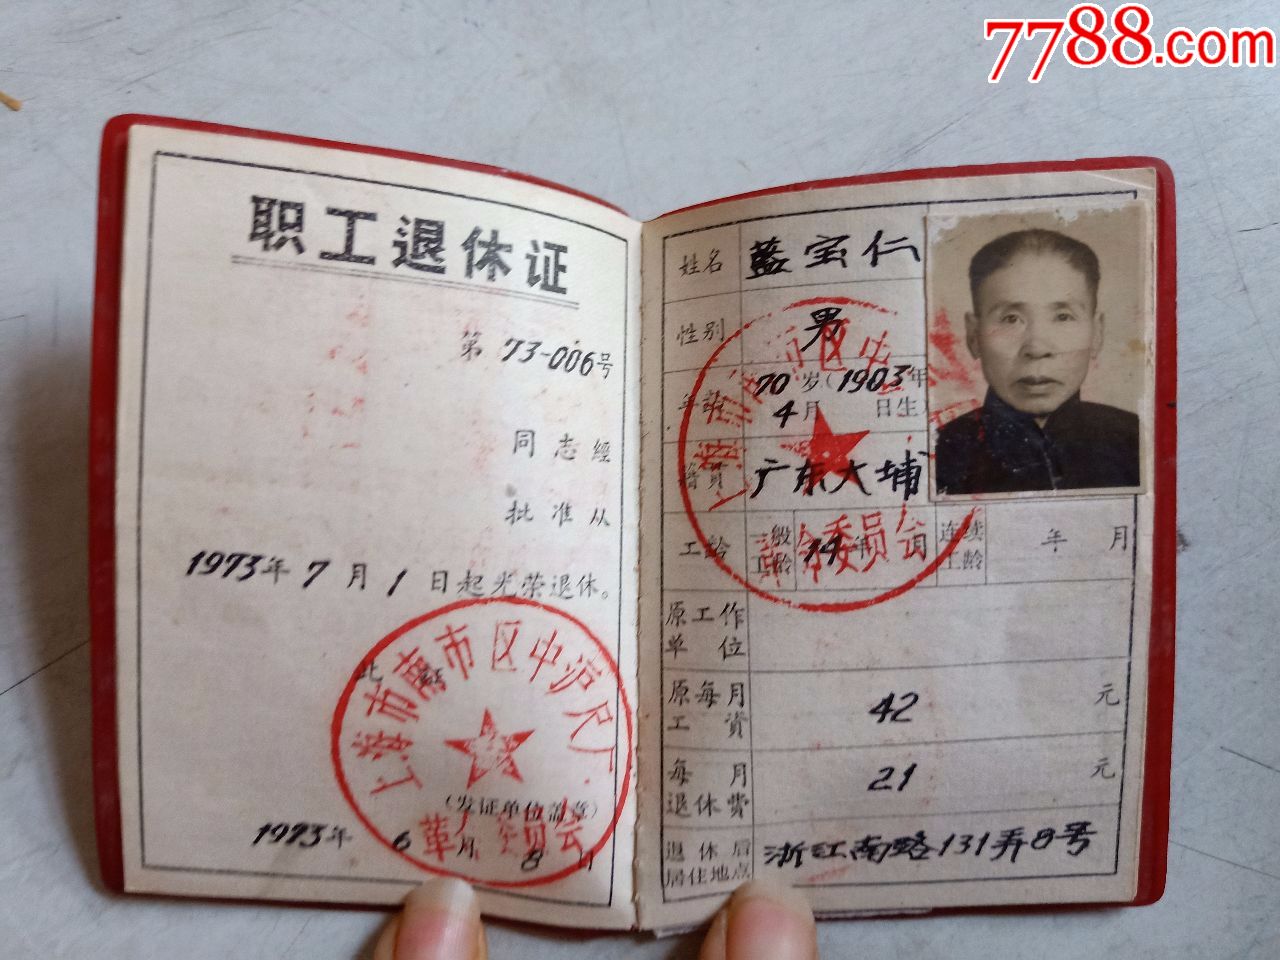 7788.com
职工退休证
第 73-006号
同志经
批准从
1973年7月1日起光荣退休。
此致
上海市南市区中沪尺厂
革命委员会
(发证单位盖章)
1973年 6月 8日
姓名 蓝宝仁
性别 男
年龄 70岁(1903年
4月 日生)
籍贯 广东大埔
工龄 一般工龄 14年 月 连续工龄 年 月
原工作单位
原每月工资 42 元
每月退休费 21 元
退休后居住地点 浙江南路131弄8号